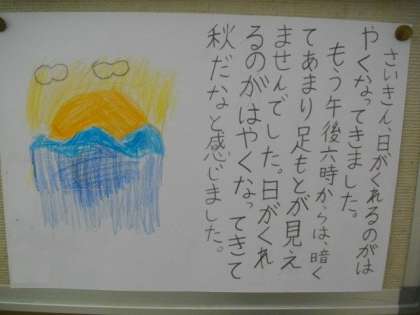 さいきん、日がくれるのがは
やくなってきました。
もう午後六時からは、暗く
てあまり足もとが見え
ませんでした。日がくれ
るのがはやくなってきて
秋だなと感じました。